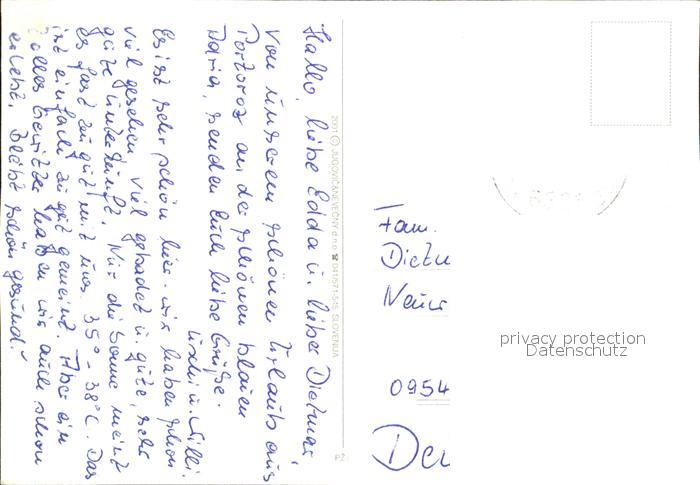 Hallo, liebe Edda u. lieber Dietmar,
Von unserem schönen Urlaub aus
Portoroz an der schönen blauen
Adria, senden Euch liebe Grüße.
Uschi u. Willi.
Es ist sehr schön hier. wir haben schon
viel gesehen, viel gebadet u. gute, sehr
gute Unterkunft. Nur die Sonne meint
es fast zu gut mit uns. 35° - 38°C. Das
ist einfach zu gut gemeint. Aber ein
tolles Gewitter haben wir auch schon
erlebt. Bleibt schön gesund!
2001 © SLOVENIJA
PZ
Fam.
Dietm
0954
privacy protection
Datenschutz